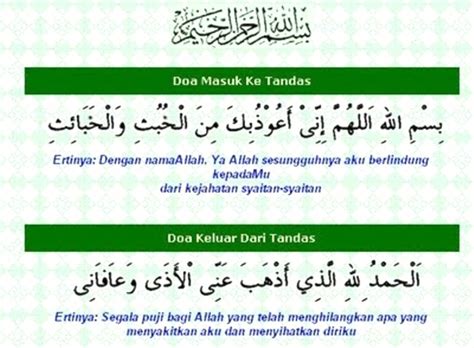 بسم الله الرحمن الرحيم
Doa Masuk Ke Tandas
بِسْمِ اللهِ اَللَّهُمَّ إِنِّىْ أَعُوْذُبِكَ مِنَ الْخُبُثِ وَالْخَبَائِثِ
Ertinya: Dengan namaAllah. Ya Allah sesungguhnya aku berlindung
kepadaMu
dari kejahatan syaitan-syaitan
Doa Keluar Dari Tandas
اَلْحَمْدُ لِلهِ الَّذِي أَذْهَبَ عَنِّى الْأَذَى وَعَافَانِى
Ertinya: Segala puji bagi Allah yang telah menghilangkan apa yang
menyakitkan aku dan menyihatkan diriku